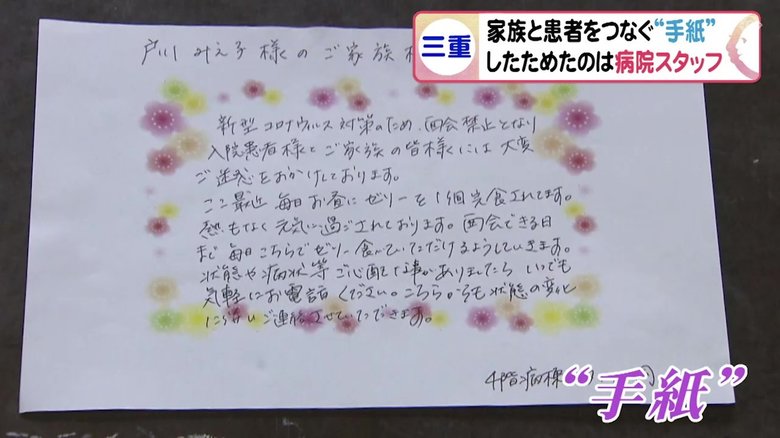 三重
家族と患者をつなぐ“手紙”
したためたのは病院スタッフ
戸川 みえ子 様 の ご家族
新型コロナウィルス対策のため、面会禁止となり
入院患者様とご家族の皆様には大変
ご迷惑をおかけしております。
ここ最近 毎日お昼にゼリーを1個完食されてます。
熱もなく元気に過ごされております。面会できる日
まで 毎日こちらでゼリー食べていただけるようしていきます。
状態や病状等ご心配な事がありましたら いつでも
気軽にお電話ください。こちらからも状態の変化
ご連絡させていただきます。
4階病棟
“手紙”